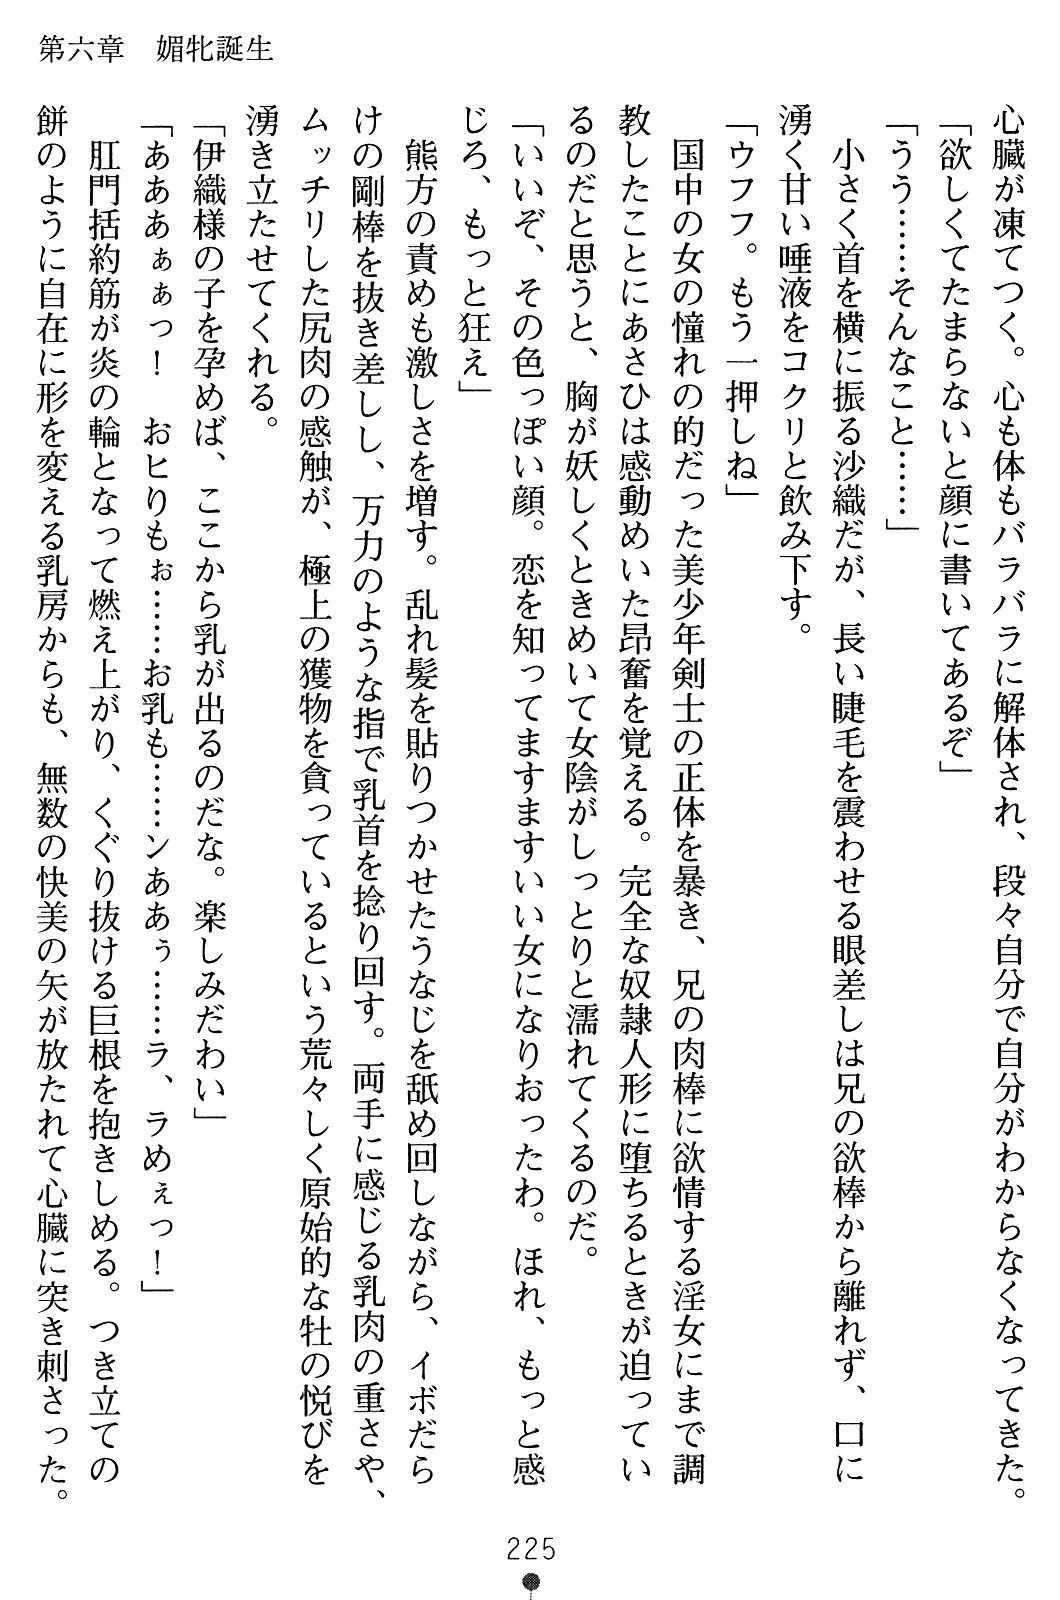 第六章　媚牝誕生
心臓が凍てつく。心も体もバラバラに解体され、段々自分で自分がわからなくなってきた。
「欲しくてたまらないと顔に書いてあるぞ」
「うう……そんなこと……」
小さく首を横に振る沙織だが、長い睫毛を震わせる眼差しは兄の欲棒から離れず、口に
湧く甘い唾液をコクリと飲み下す。
「ウフフ。もう一押しね」
国中の女の憧れの的だった美少年剣士の正体を暴き、兄の肉棒に欲情する淫女にまで調
教したことにあさひは感動めいた昂奮を覚える。完全な奴隷人形に堕ちるときが迫ってい
るのだと思うと、胸が妖しくときめいて女陰がしっとりと濡れてくるのだ。
「いいぞ、その色っぽい顔。恋を知ってますますいい女になりおったわ。ほれ、もっと感
じろ、もっと狂え」
熊方の責めも激しさを増す。乱れ髪を貼りつかせたうなじを舐め回しながら、イボだら
けの剛棒を抜き差しし、万力のような指で乳首を捻り回す。両手に感じる乳肉の重さや、
ムッチリした尻肉の感触が、極上の獲物を貪っているという荒々しく原始的な牡の悦びを
湧き立たせてくれる。
「伊織様の子を孕めば、ここから乳が出るのだな。楽しみだわい」
「あああぁぁっ！　おヒりもぉ……お乳も……ンああぅ……ラ、ラめぇっ！」
肛門括約筋が炎の輪となって燃え上がり、くぐり抜ける巨根を抱きしめる。つき立ての
餅のように自在に形を変える乳房からも、無数の快美の矢が放たれて心臓に突き刺さった。
225